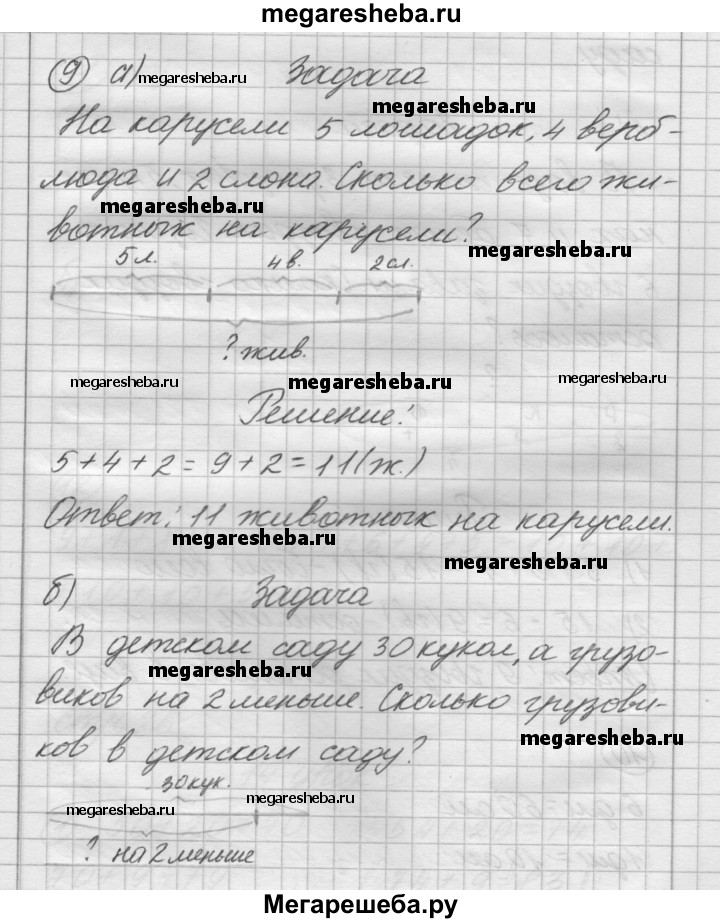 megaresheba.ru
9 а) megaresheba.ru Задача
megaresheba.ru
На карусели 5 лошадок, 4 верб-
люда и 2 слона. Сколько всего жи-
megaresheba.ru
вотных на карусели?
megaresheba.ru
5 л. 4 в. 2 сл.
? жив.
megaresheba.ru megaresheba.ru megaresheba.ru
Решение:
5+4+2=9+2=11(ж.)
Ответ: 11 животных на карусели.
megaresheba.ru
megaresheba.ru
б) Задача
В детском саду 30 кукол, а грузо-
megaresheba.ru
виков на 2 меньше. Сколько грузови-
megaresheba.ru
ков в детском саду?
30 кук.
megaresheba.ru megaresheba.ru
? на 2 меньше
Мегарешеба.ру